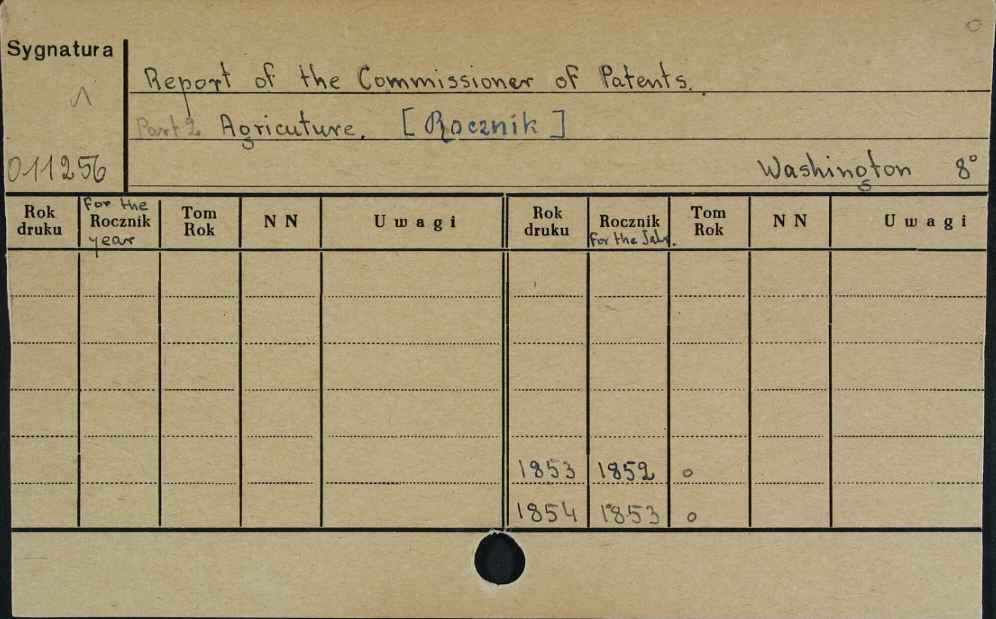 Sygnatura
Report of the Commissioner of Patents.
Part 2 Agricuture. [Rocznik]
011256
Washington 8°
Rok druku for the Rocznik year Tom Rok NN Uwagi Rok druku Rocznik for the Tom Rok NN Uwagi
1853 1852 o
1854 1853 o